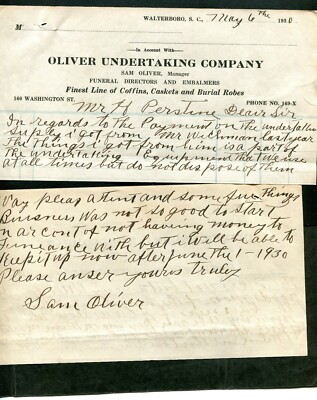 WALTERBORO, S. C., May 6the 1930.
M
In Account With
OLIVER UNDERTAKING COMPANY
SAM OLIVER, Manager
FUNERAL DIRECTORS AND EMBALMERS
Finest Line of Coffins, Caskets and Burial Robes
160 WASHINGTON ST. PHONE NO. 169-X
Mr H Perstine Dear Sir
In regards to the Payment on the undertaken
Suply i got from Mr Wichman last year
The things i got from him is a part of
the undertaking Equipment that we use
at all times but do not dispose of them
Say pleap a tent and some fue Things
Buisness was not so good to start
in arcont of not having money to
Fineance with but i will be able to
Keep it up now after June the 1-1930
Please anser yours truley
Sam Oliver